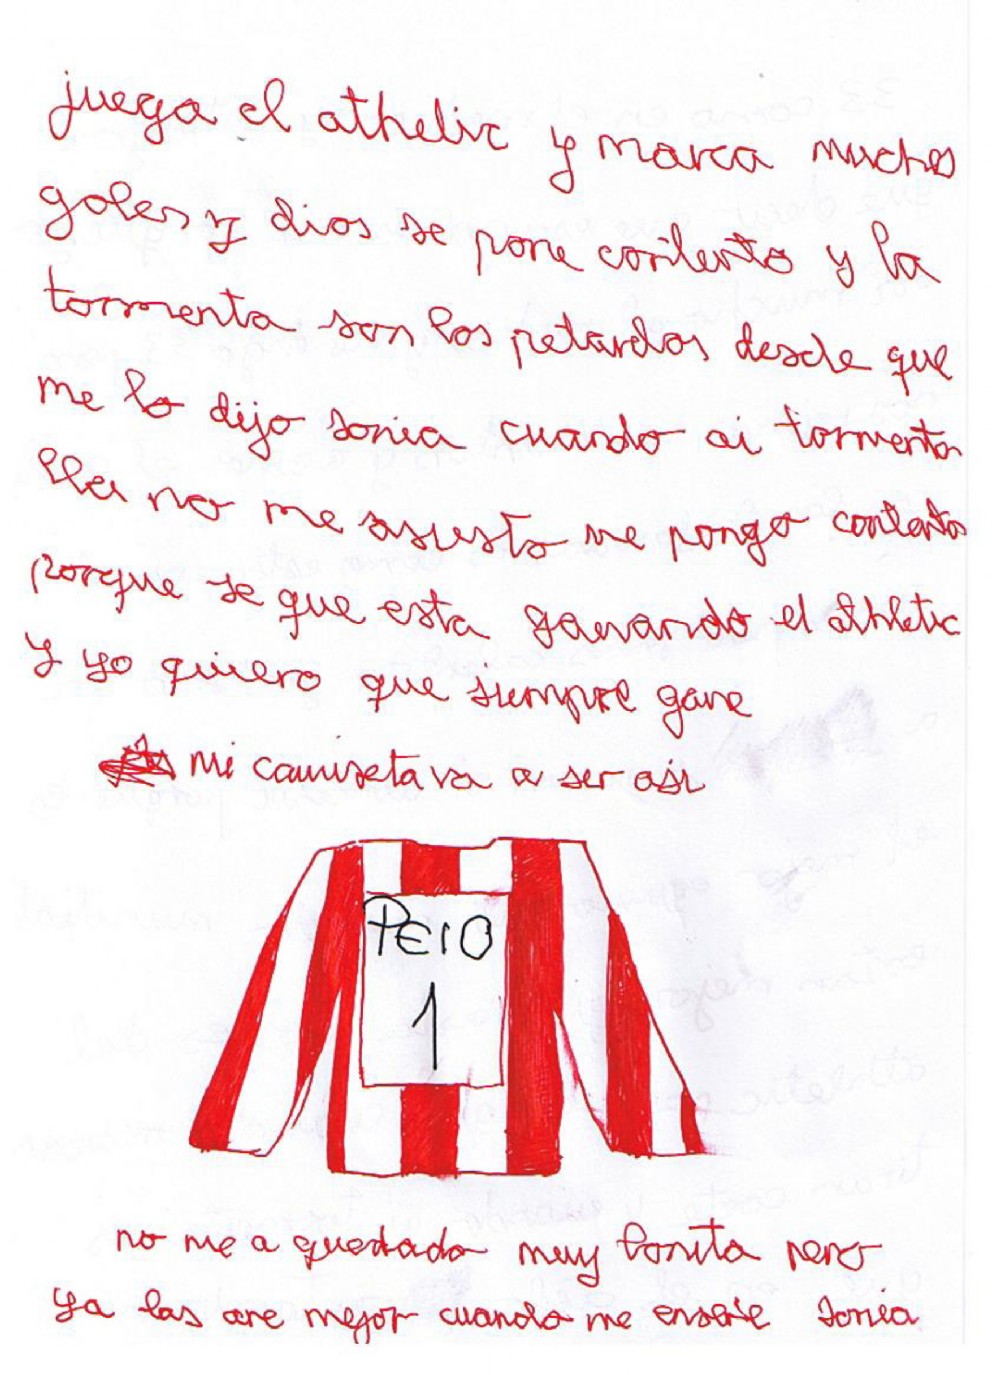 juega el athelic y marca muchos
goles y dios se pone contento y la
tormenta son los petardos desde que
me lo dijo sonia cuando ai tormenta
lla no me asusto me pongo contento
porque se que esta ganando el athletic
y yo quiero que siempre gane
mi camiseta va a ser asi
PEIO
1
no me a quedado muy bonita pero
ya las are mejor cuando me enseñe sonia